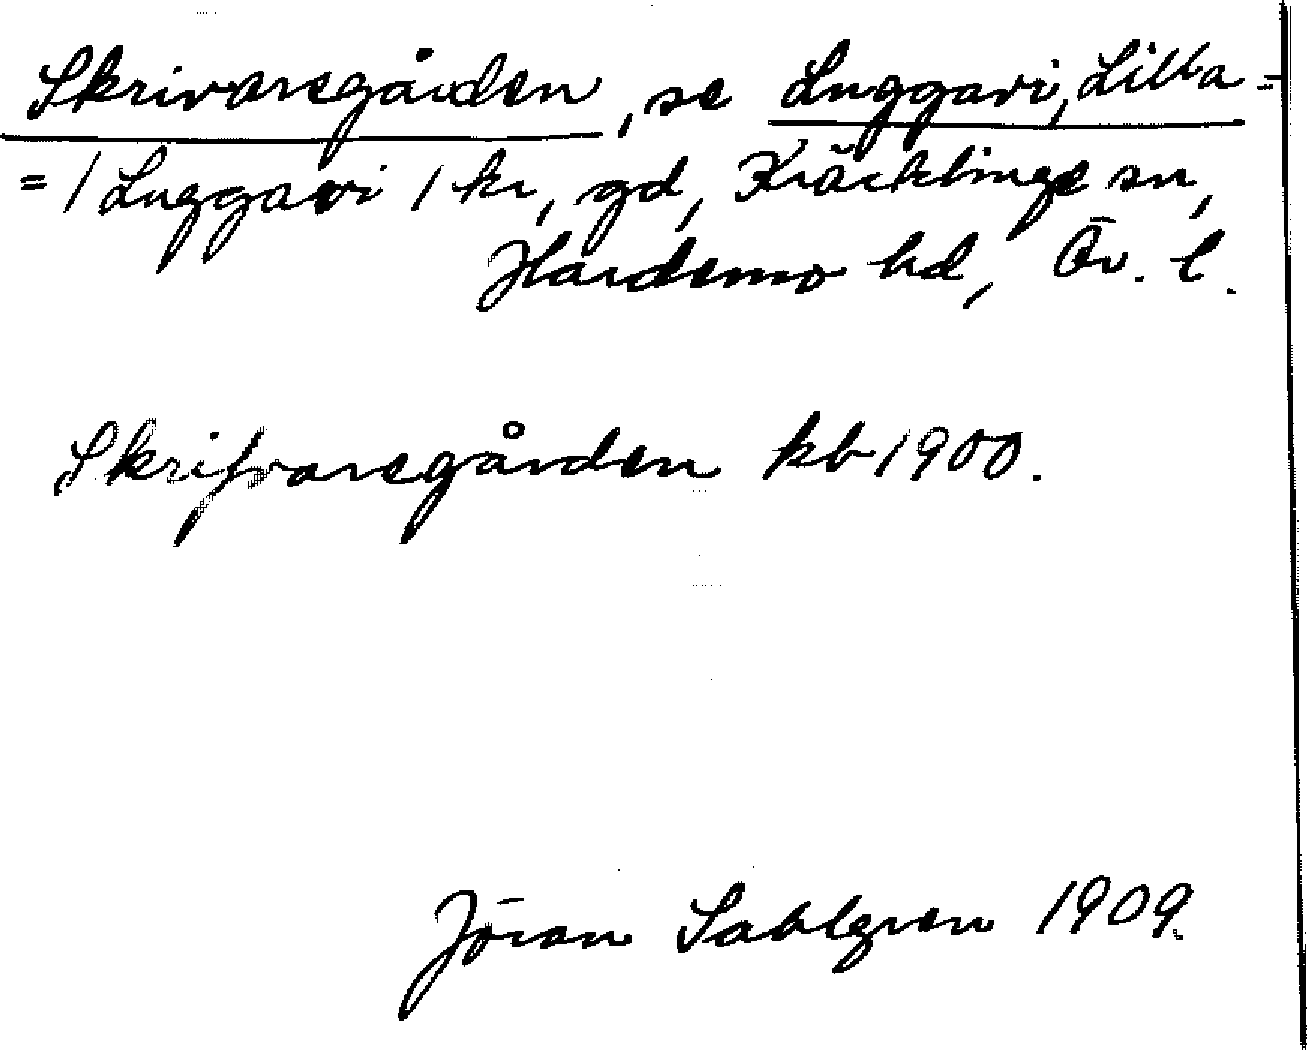 Skrivaregården, se Luggavi, Lilla =
= / Luggavi / kr, gd, Kräcklinge sn,
Hardemo hd, Ör. l.
Skrifvaregården kb 1900.
Jöran Sahlgren 1909.